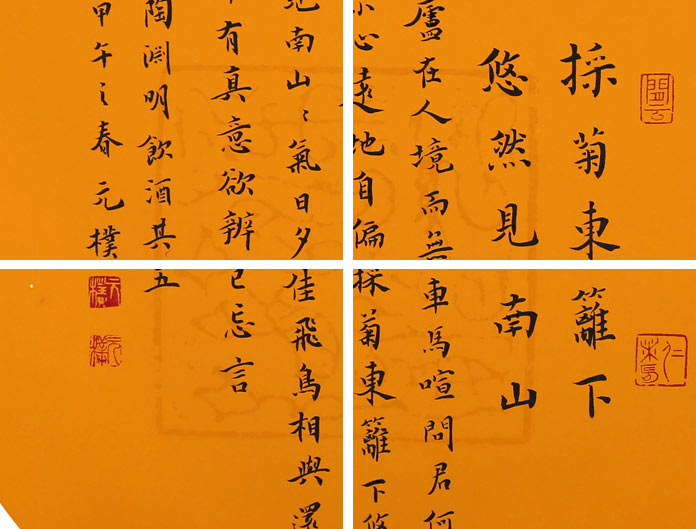 採菊東籬下
悠然見南山
廬在人境而無車馬喧問君何
心遠地自偏採菊東籬下悠
南山〻氣日夕佳飛鳥相與還
有真意欲辨已忘言
陶淵明飲酒其五
甲午之春元樸